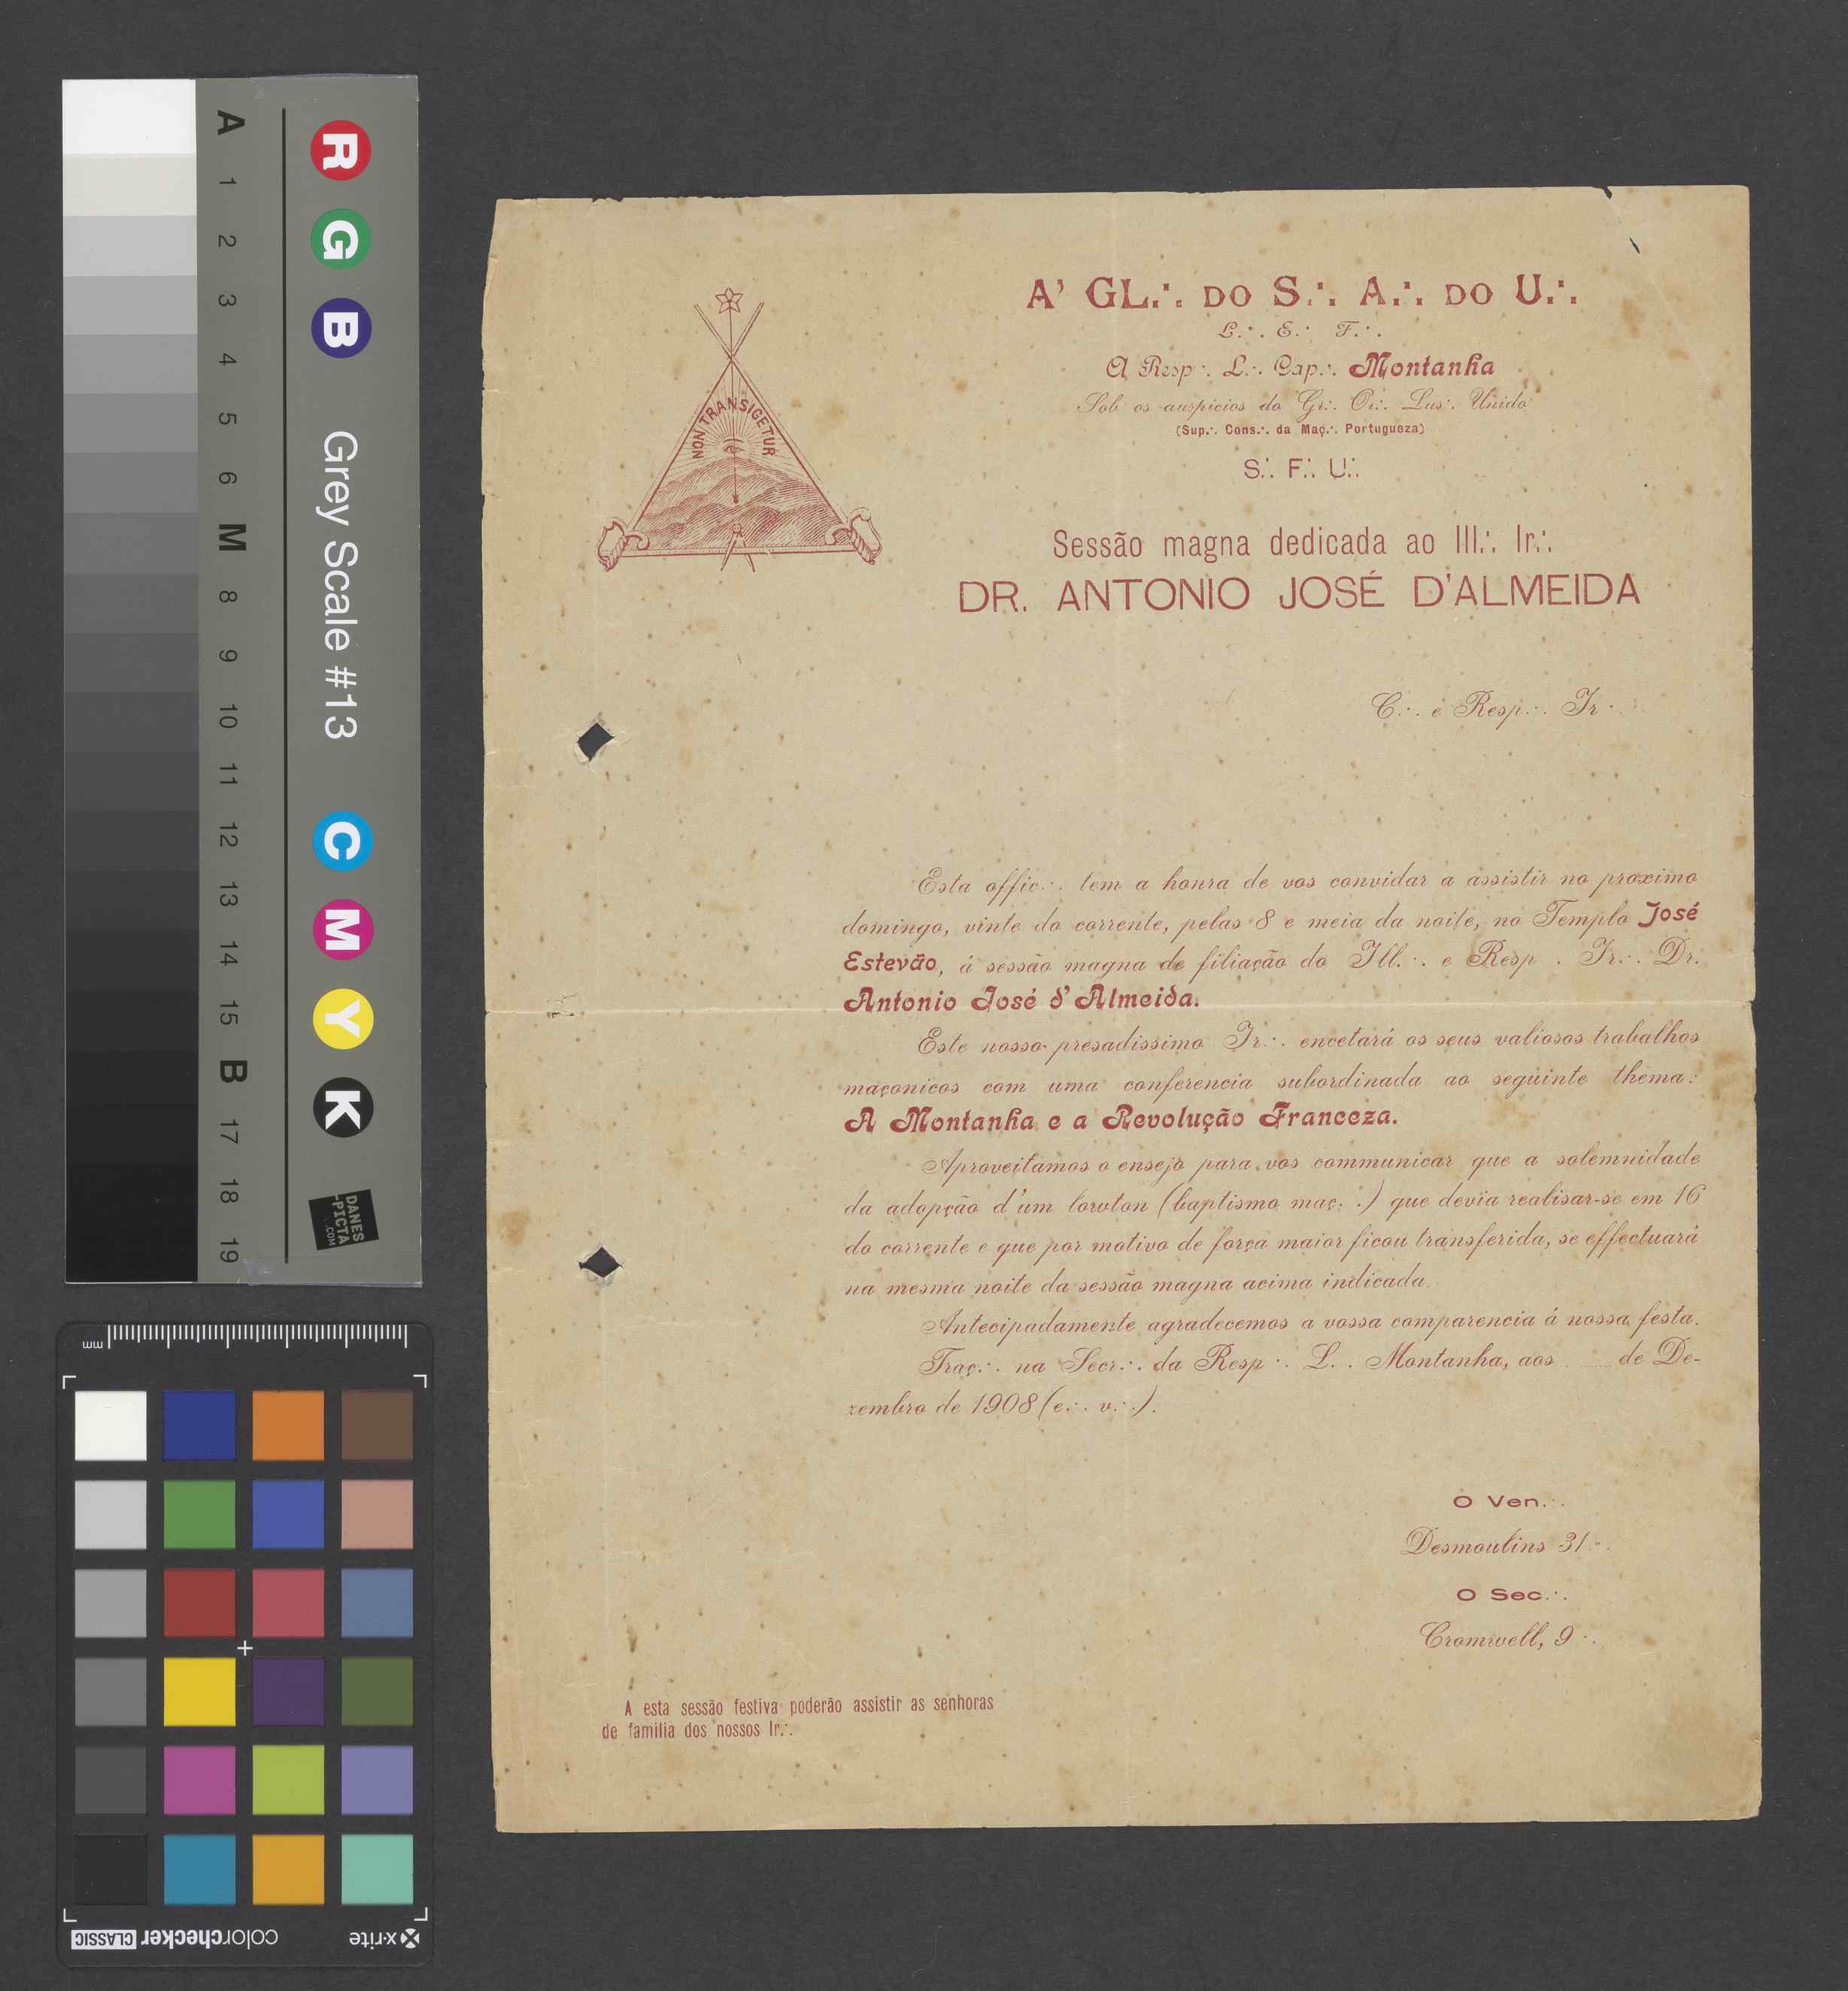 A
1
2
3
4
5
6
M
8
9
10
11
12
13
14
15
B
17
18
19
R
G
B
Grey Scale #13
C
M
Y
K
DANES
-PICTA
.COM
mm
colorchecker CLASSIC
x-rite
NON TRANSIGETUR
A' GL.·. DO S.·. A.·. DO U.·.
L.·. E.·. F.·.
A Resp.·. L.·. Cap.·. Montanha
Sob os auspicios do Gr.·. Or.·. Lus.·. Unido
(Sup.·. Cons.·. da Maç.·. Portugueza)
S.·. F.·. U.·.
Sessão magna dedicada ao Ill.·. Ir.·.
DR. ANTONIO JOSÉ D'ALMEIDA
C.·. e Resp.·. Ir.·.
Esta offic.·. tem a honra de vos convidar a assistir no proximo
domingo, vinte do corrente, pelas 8 e meia da noite, no Templo José
Estevão, á sessão magna de filiação do Ill.·. e Resp.·. Ir.·. Dr.
Antonio José d'Almeida.
Este nosso presadissimo Ir.·. encetará os seus valiosos trabalhos
maçonicos com uma conferencia subordinada ao seguinte thema:
A Montanha e a Revolução Franceza.
Aproveitamos o ensejo para vos communicar que a solemnidade
da adopção d'um lowton (baptismo maç.·.) que devia realisar-se em 16
do corrente e que por motivo de força maior ficou transferida, se effectuará
na mesma noite da sessão magna acima indicada.
Antecipadamente agradecemos a vossa comparencia á nossa festa.
Traç.·. na Secr.·. da Resp.·. L.·. Montanha, aos ..... de De-
zembro de 1908 (e.·. v.·.).
O Ven.·.
Desmoulins 31.·.
O Sec.·.
Cromwell, 9.·.
A esta sessão festiva poderão assistir as senhoras
de familia dos nossos Ir.·.